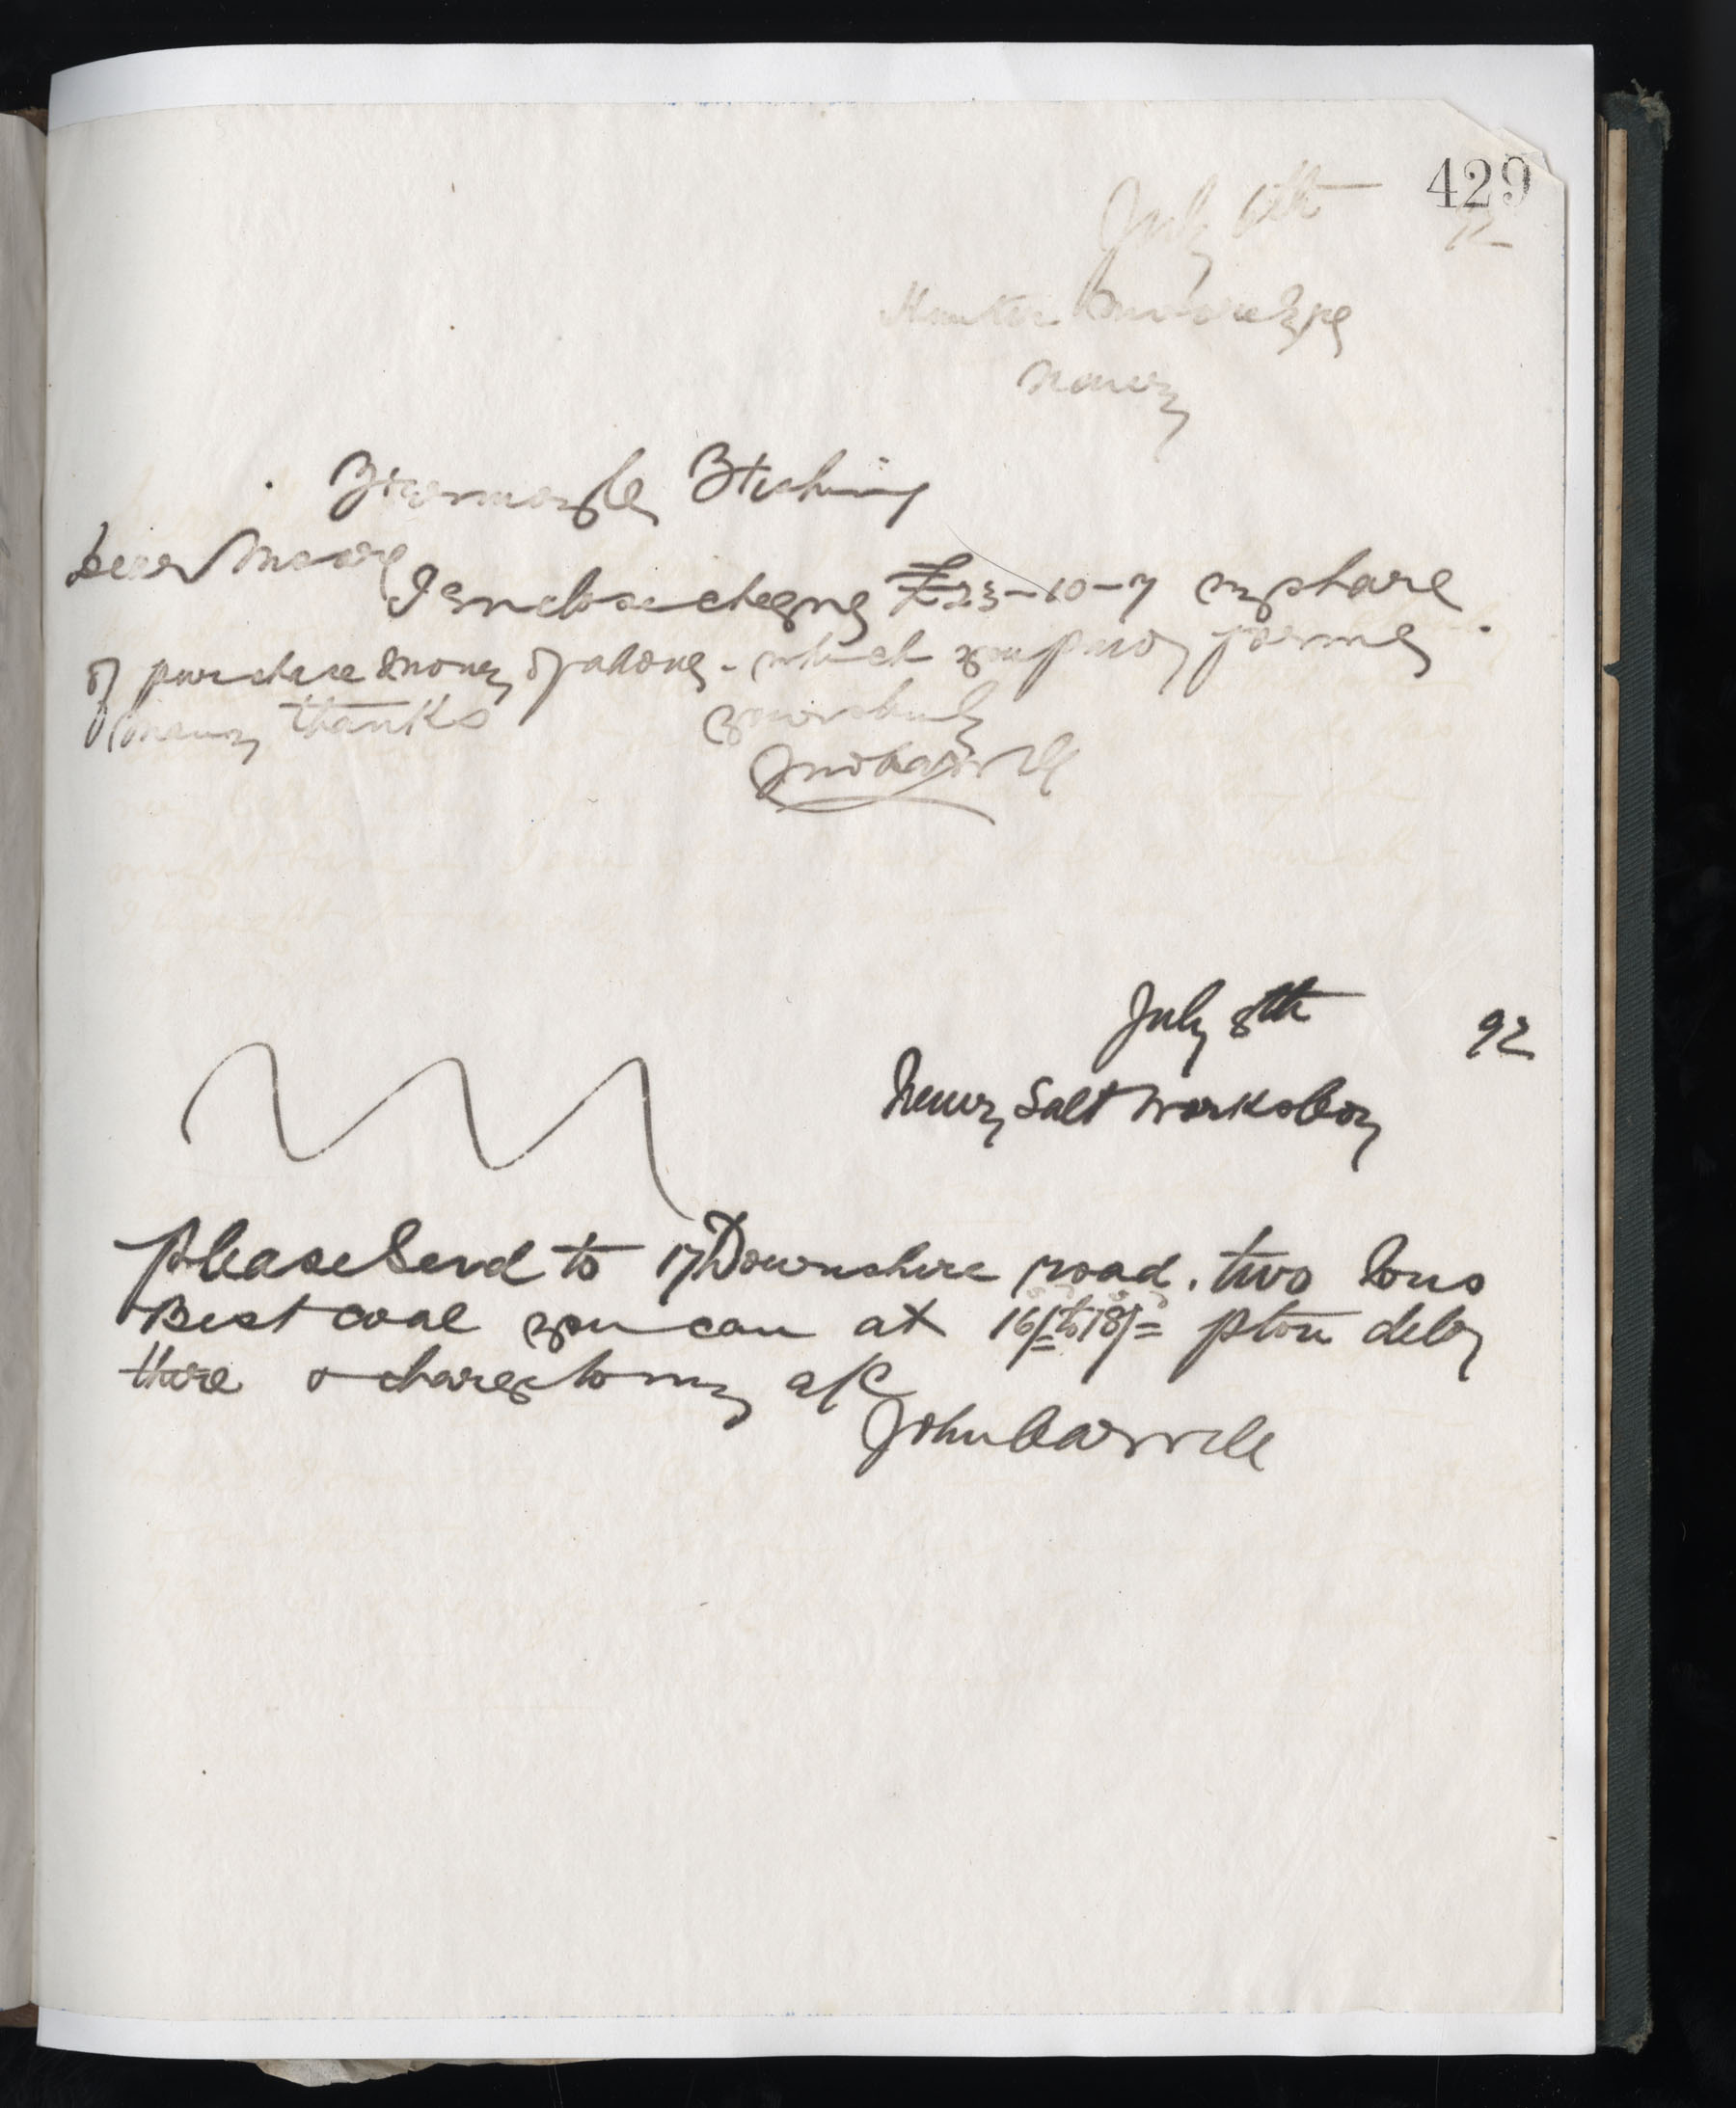 429
July 6th 92
Hunter Moore Esqe
Newry
Fishing
Dear Moore
I enclose cheque £23-10-7 my share
of purchase money of above - which you paid for me
many thanks yours truly
Jno Carvill
July 8th 92
Newry Salt Works Coy
Please Send to 17 Downshire road. two tons
Best coal you can at 16/= to 18/= p ton dely
there & charge to my a/c
John Carvill